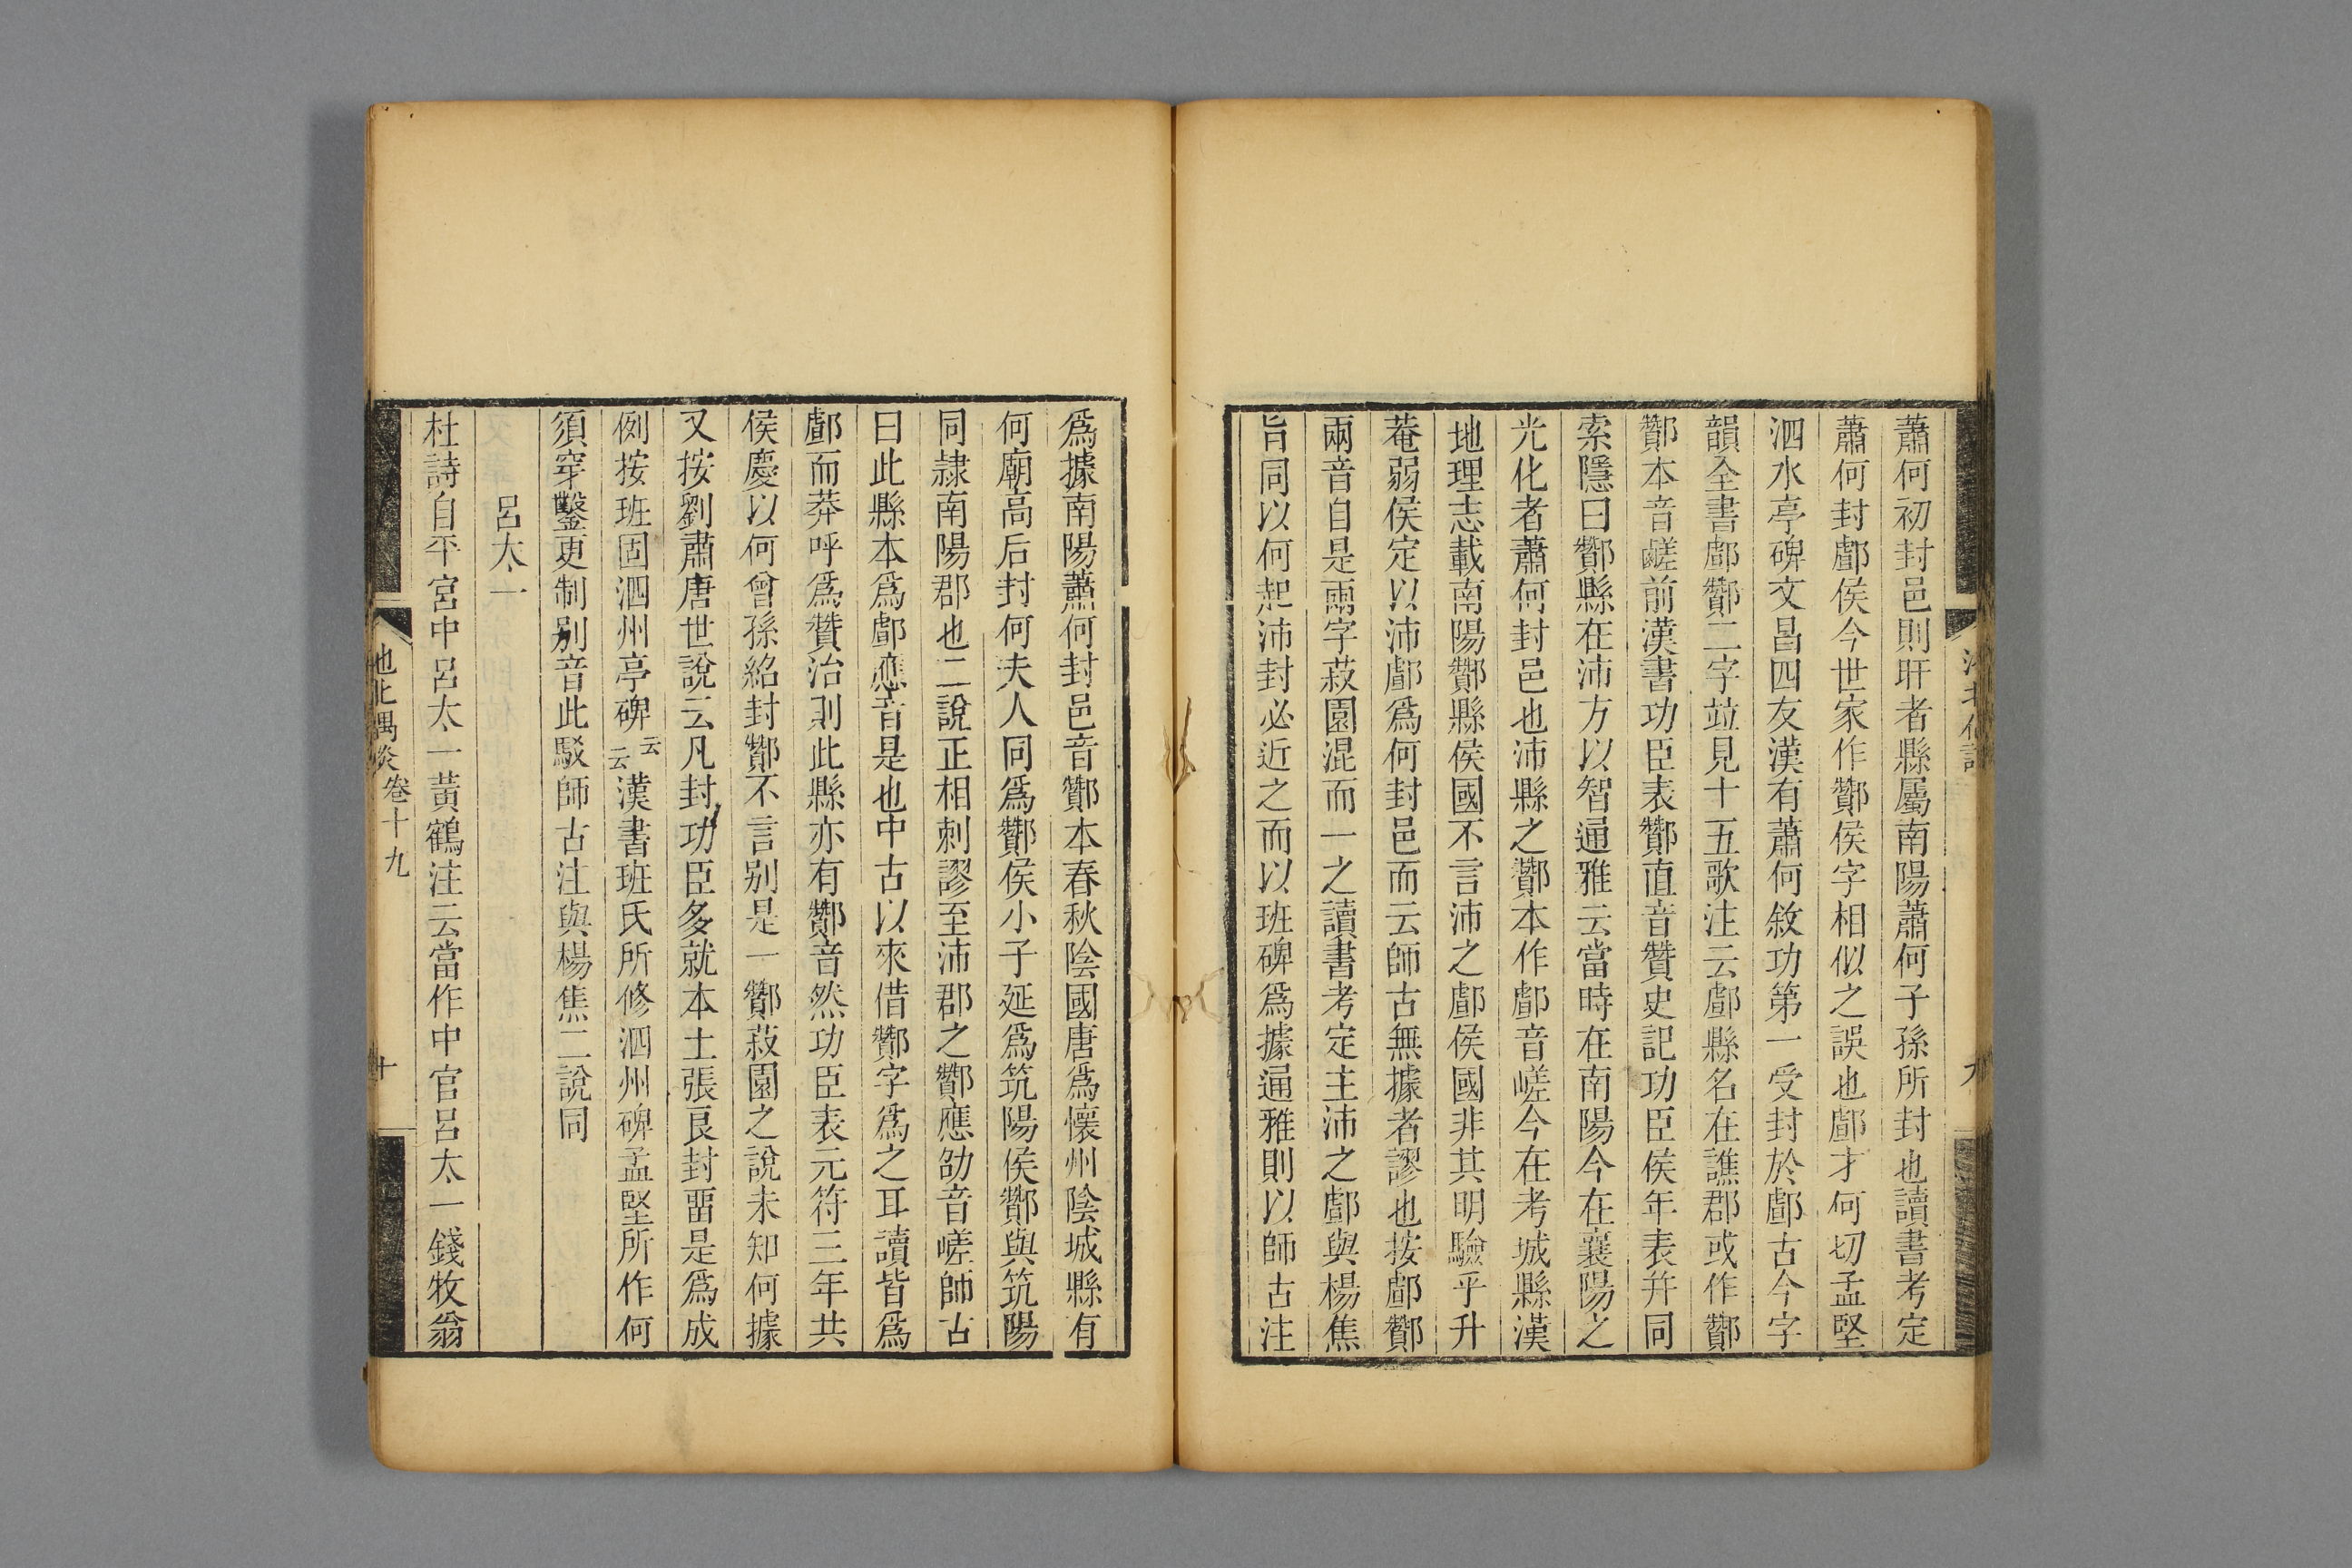 蕭何初封邑則旰者縣屬南陽蕭何子孫所封也讀書考定
蕭何封酇侯今世家作酇侯字相似之誤也䣜才何切孟堅
泗水亭碑文昌四友漢有蕭何敘功第一受封於䣜古今字
韻全書䣜酇二字竝見十五歌注云䣜縣名在譙郡或作酇
酇本音嵯前漢書功臣表酇直音贊史記功臣侯年表幷同
索隱曰酇縣在沛方以智通雅云當時在南陽今在襄陽之
光化者蕭何封邑也沛縣之酇本作䣜音嵯今在考城縣漢
地理志載南陽酇縣侯國不言沛之䣜侯國非其明驗乎升
菴弱侯定以沛䣜爲何封邑而云師古無據者謬也按䣜酇
兩音自是兩字菽園混而一之讀書考定主沛之䣜與楊焦
旨同以何起沛封必近之而以班碑爲據通雅則以師古注
爲據南陽蕭何封邑音酇本春秋陰國唐爲懷州陰城縣有
何廟高后封何夫人同爲酇侯小子延爲筑陽侯酇與筑陽
同隷南陽郡也二說正相刺謬至沛郡之酇應劭音嵯師古
曰此縣本爲䣜應音是也中古以來借酇字爲之耳讀皆爲
䣜而莽呼爲贊治則此縣亦有酇音然功臣表元符三年共
侯慶以何曾孫紹封酇不言别是一酇菽園之說未知何據
又按劉肅唐世說云凡封功臣多就本土張良封畱是爲成
例按班固泗州亭碑云云漢書班氏所修泗州碑孟堅所作何
須穿鑿更制别音此駁師古注與楊焦二說同
呂太一
杜詩自平宮中呂太一黃鶴注云當作中官呂太一錢牧翁
池北偶談卷十九
十